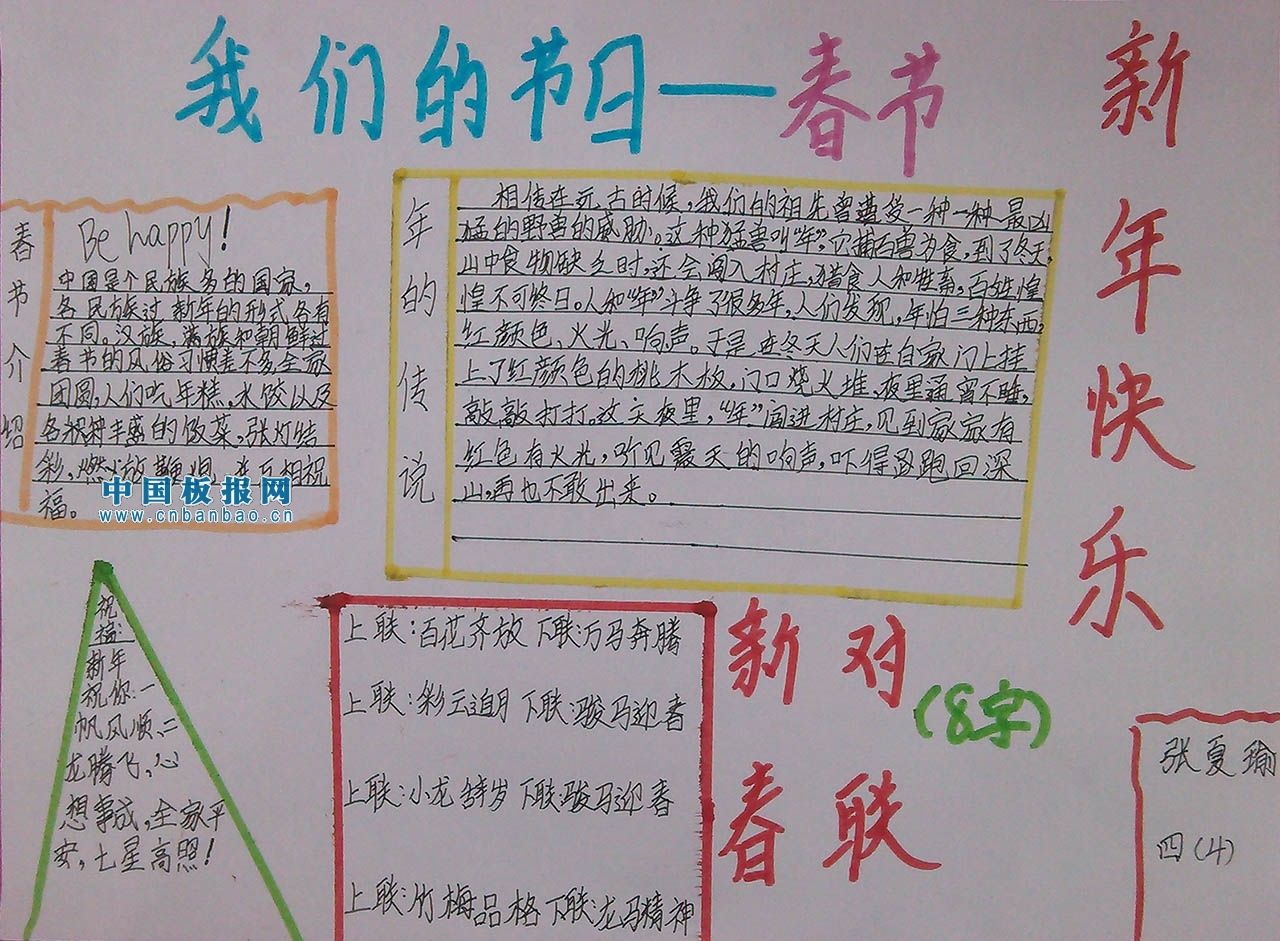 我们的节日——春节
新年快乐
春节介绍
Be happy!
中国是个民族多的国家,
各民族过新年的形式各有
不同。汉族,满族和朝鲜过
春节的风俗习惯差不多,全家
团圆,人们吃年糕,水饺以及
各种丰盛的饭菜,张灯结
彩,燃放鞭炮,互相祝
福。
中国板报网
www.cnbanbao.cn
年的传说
相传在远古时候,我们的祖先曾遭受一种一种最凶
猛的野兽的威胁。这种猛兽叫“年”,它捕百兽为食,到了冬天,
山中食物缺乏时,还会闯入村庄,猎食人和牲畜,百姓惶
惶不可终日。人和“年”斗争了很多年,人们发现,年怕三种东西,
红颜色、火光、响声。于是在冬天人们在自家门上挂
上了红颜色的桃木板,门口烧火堆,夜里通宵不睡,
敲敲打打。这天夜里,“年”闯进村庄,见到家家有
红色有火光,听见震天的响声,吓得跑回深
山,再也不敢出来。
祝福:
新年
祝你一
帆风顺,二
龙腾飞,心
想事成,全家平
安,七星高照!
上联:百花齐放 下联:万马奔腾
上联:彩云追月 下联:骏马迎春
上联:小龙辞岁 下联:骏马迎春
上联:竹梅品格 下联:龙马精神
新对
(8字)
春联
张夏瑜
四(4)